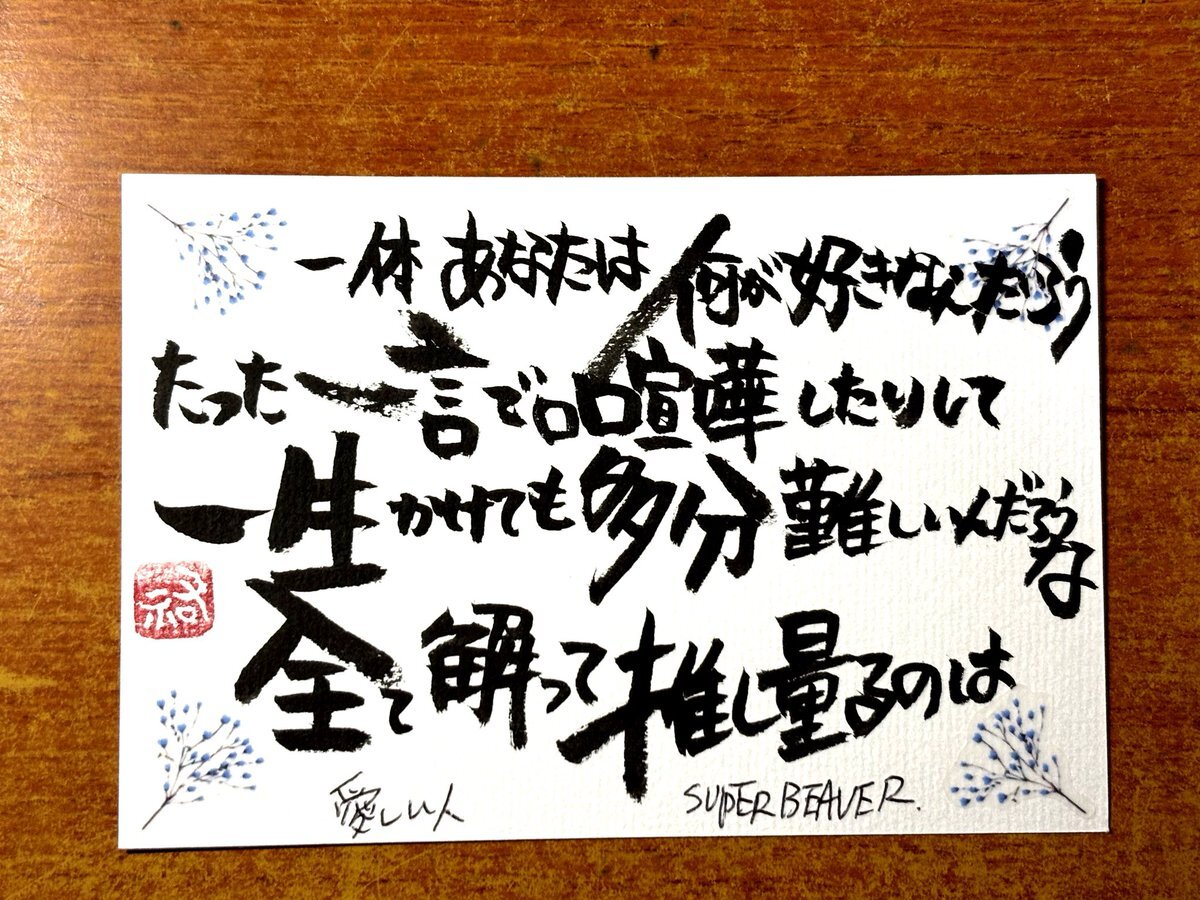 一体あなたは何が好きなんだろう
たった一言で口喧嘩したりして
一生かけても多分難しいんだろうな
全て解って推し量るのは
愛しい人
SUPER BEAVER.